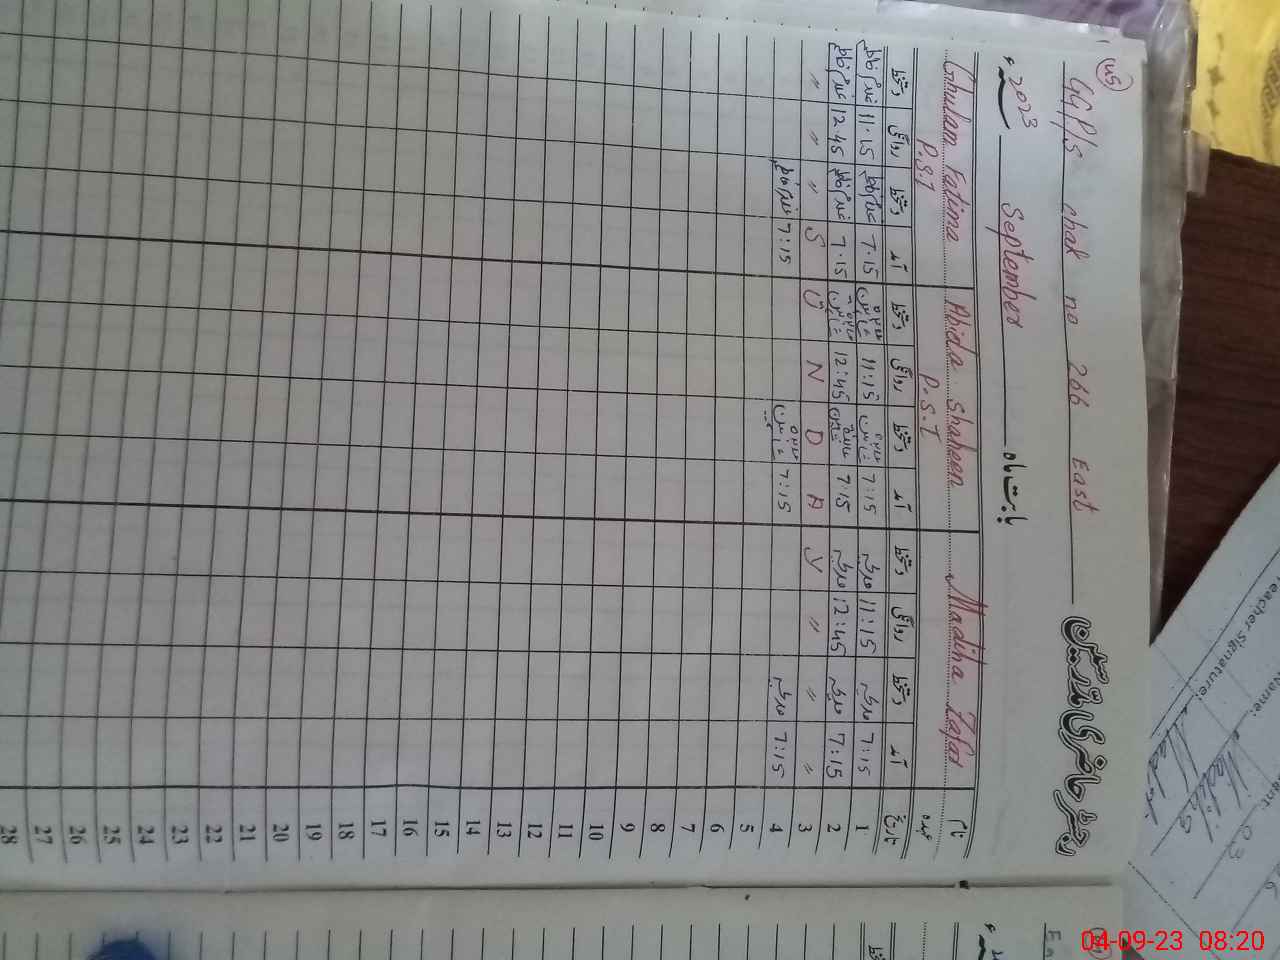 115
GGP/S chak no 266 East رجسٹر حاضری مدرسین
2023ء September بابت ماہ
Ghulam Fatima Abida Shaheen Madiha Zafar نام
P.S.T P.S.T عہدہ
دستخط روانگی دستخط آمد دستخط روانگی دستخط آمد دستخط روانگی دستخط آمد تاریخ
غلام فاطمہ 11:15 غلام فاطمہ 7:15 عابدہ شاہین 11:15 عابدہ شاہین 7:15 مدیحہ 11:15 مدیحہ 7:15 1
غلام فاطمہ 12:45 غلام فاطمہ 7:15 عابدہ شاہین 12:45 عابدہ شاہین 7:15 مدیحہ 12:45 مدیحہ 7:15 2
" " " S U N D A Y " " " 3
غلام فاطمہ 7:15 عابدہ شاہین 7:15 مدیحہ 7:15 4
5
6
7
8
9
10
11
12
13
14
15
16
17
18
19
20
21
22
23
24
25
26
27
28
Teacher Signature:
Name:
Madiha
04-09-23 08:20